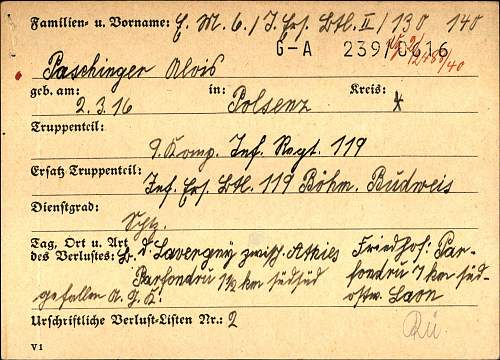 Familien- u. Vorname: E. M. 6./ J. Ers. Btl. II / 130 140
G-A 239/0616
Paschinger Alois
geb. am: in: Kreis:
2.3.16 Polsenz
Truppenteil:
9. Komp. Inf. Regt. 119
Ersatz Truppenteil:
Inf. Ers. Btl. 119 Böhm. Budweis
Dienstgrad:
Schtz.
Tag, Ort u. Art
des Verlustes: Lavergny zwisch. Athies Friedhof: Par-
Parfondru 1½ km südsüd fondru 7 km süd-
gefallen A. G. K. ostw. Laon
Urschriftliche Verlust-Listen Nr.: 2
Rü.
V1